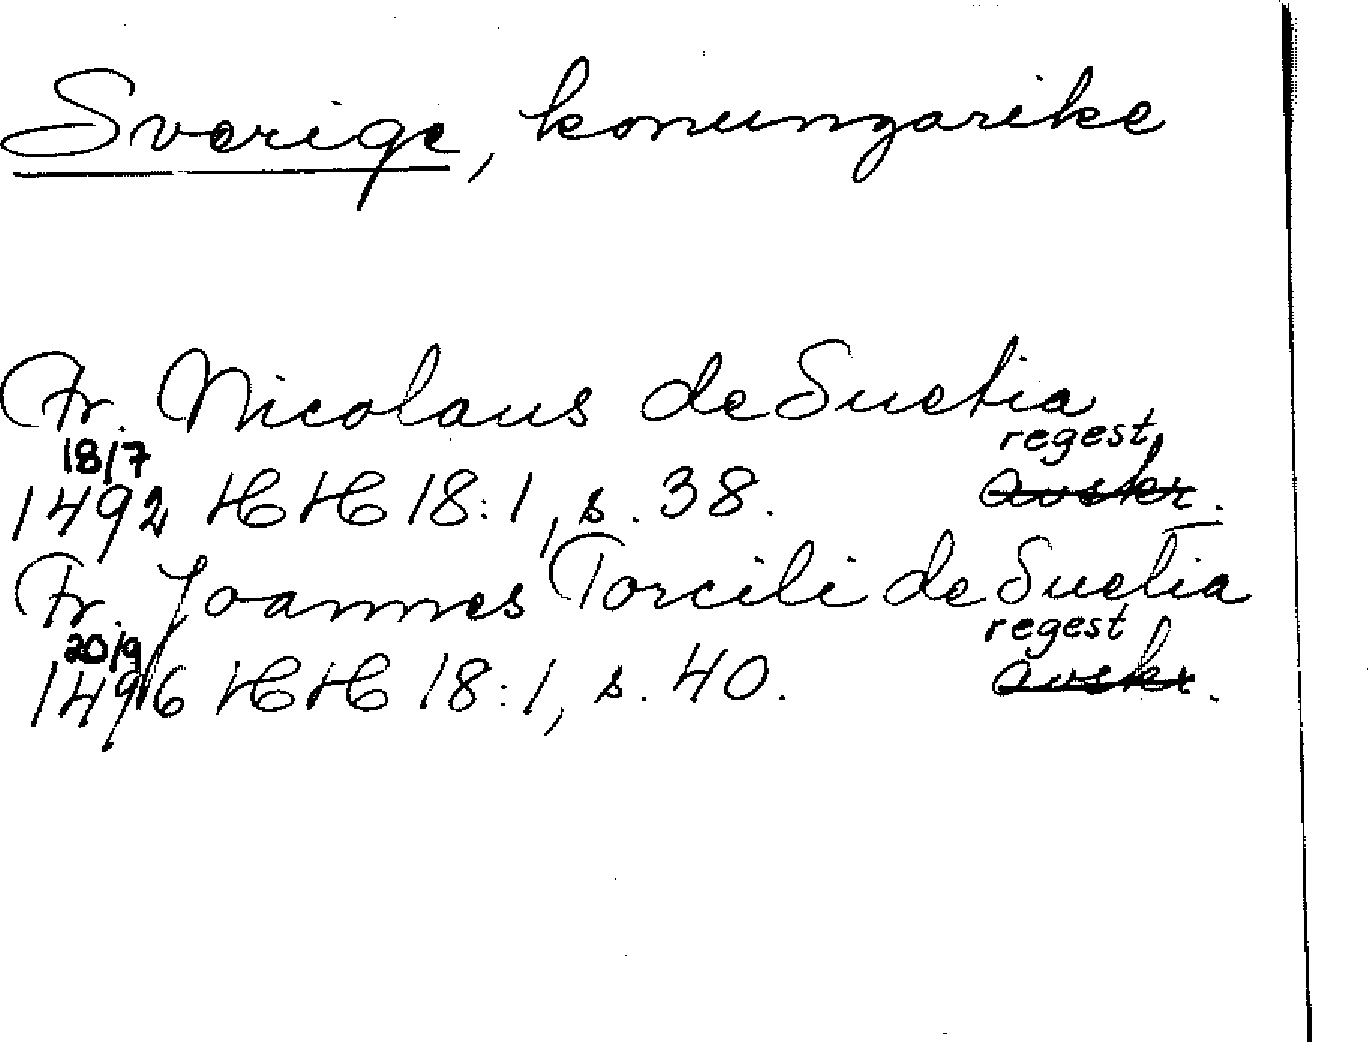 Sverige, konungarike
Fr. Nicolaus de Suetia
18/7 regest,
1492 HH 18:1, s. 38. avskr.
Fr. Joannes Torcili de Suetia
20/9 regest
1496 HH 18:1, s. 40. avskr.